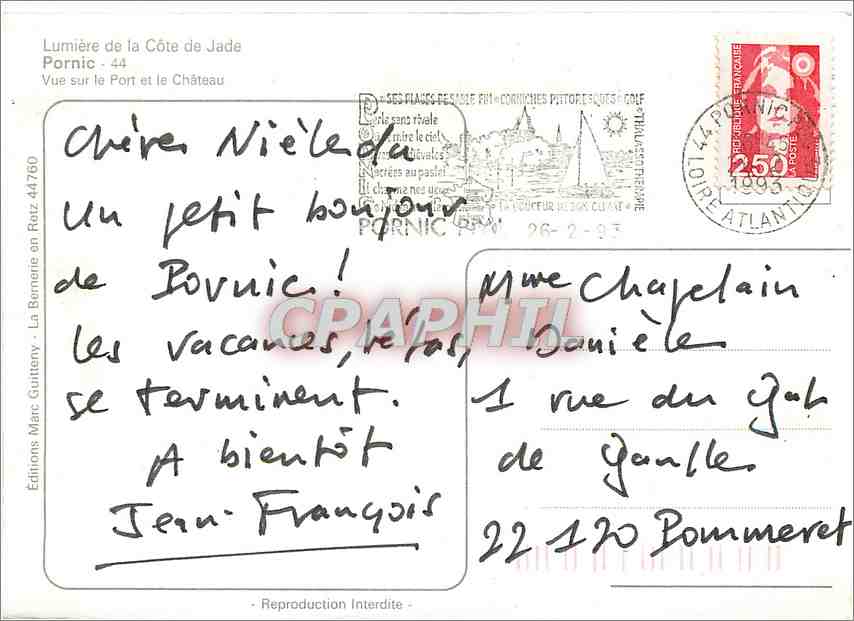 Lumière de la Côte de Jade
Pornic - 44
Vue sur le Port et le Château
SES PLAGES DE SABLE FIN • CORNICHES PITTORESQUES • GOLF
THALASSOTHERAPIE
LA DOUCEUR DE SON CLIMAT
PORNIC
26-2-93
44 PORNIC
1993
LOIRE ATLANTIQUE
REPUBLIQUE FRANÇAISE
2,50
LA POSTE
Chère
Un petit bonjour
de Pornic!
Les vacances, hélas,
se terminent.
A bientôt
Jean-François
Mme Chapelain
Danièle
1 rue du Gal
de Gaulle
22120 Pommeret
Éditions Marc Guitteny - La Bernerie en Retz 44760
- Reproduction Interdite -
CPAPHIL